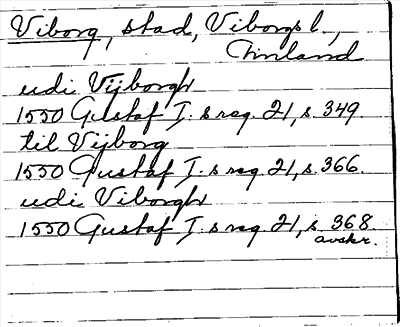 Viborg, stad, Viborgs l.,
Finland
udi Vijborgh
1550 Gustaf I. s reg. 21, s. 349.
til Vijborg
1550 Gustaf I. s reg. 21, s. 366.
udi Viborgh
1550 Gustaf I. s reg. 21, s. 368.
avskr.